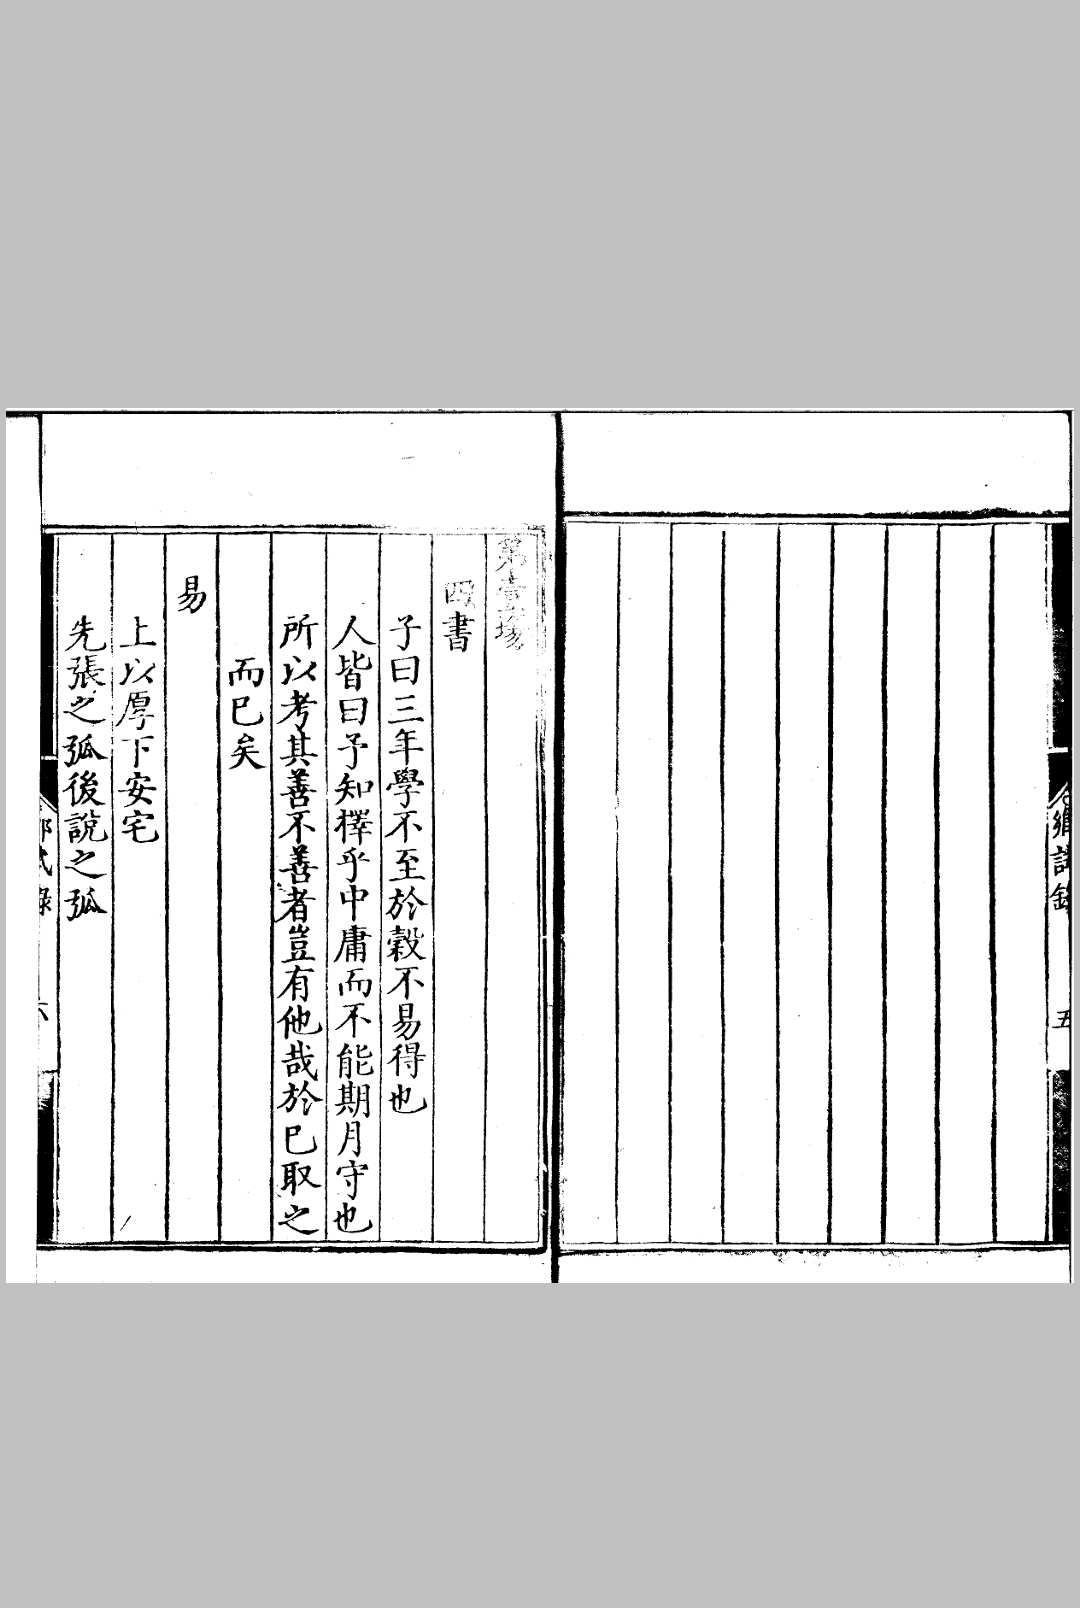 鄉試錄
五
第壹場
四書
子曰三年學不至於穀不易得也
人皆曰予知擇乎中庸而不能期月守也
所以考其善不善者豈有他哉於已取之
而已矣
易
上以厚下安宅
先張之弧後說之弧
鄉試錄
六